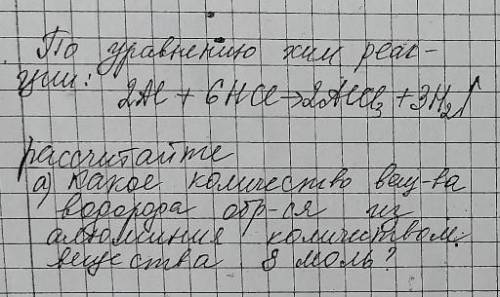 По уравнению хим реак-
ции:
2Al + 6HCl→2AlCl₃ +3H₂↑
рассчитайте
а) Какое количество вещ-ва
водорода обр-ся из
алюминия количеством
вещества 8 моль?